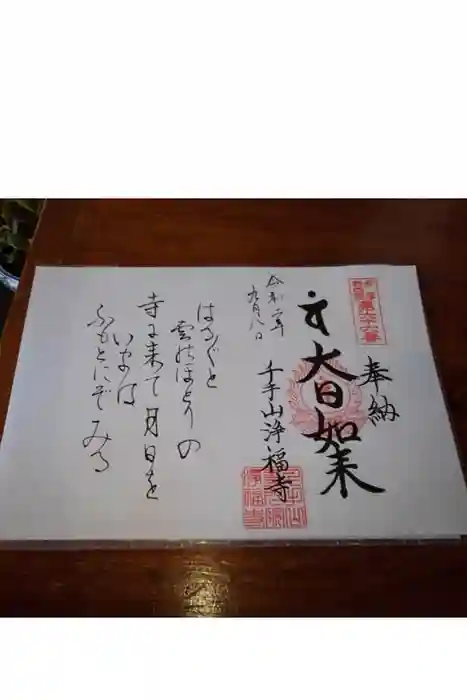 奉納
大日如来
千手山浄福寺
令和二年
九月八日
はるばると
雲のほとりの
寺に来て月日を
いまは
ふもとにぞみる